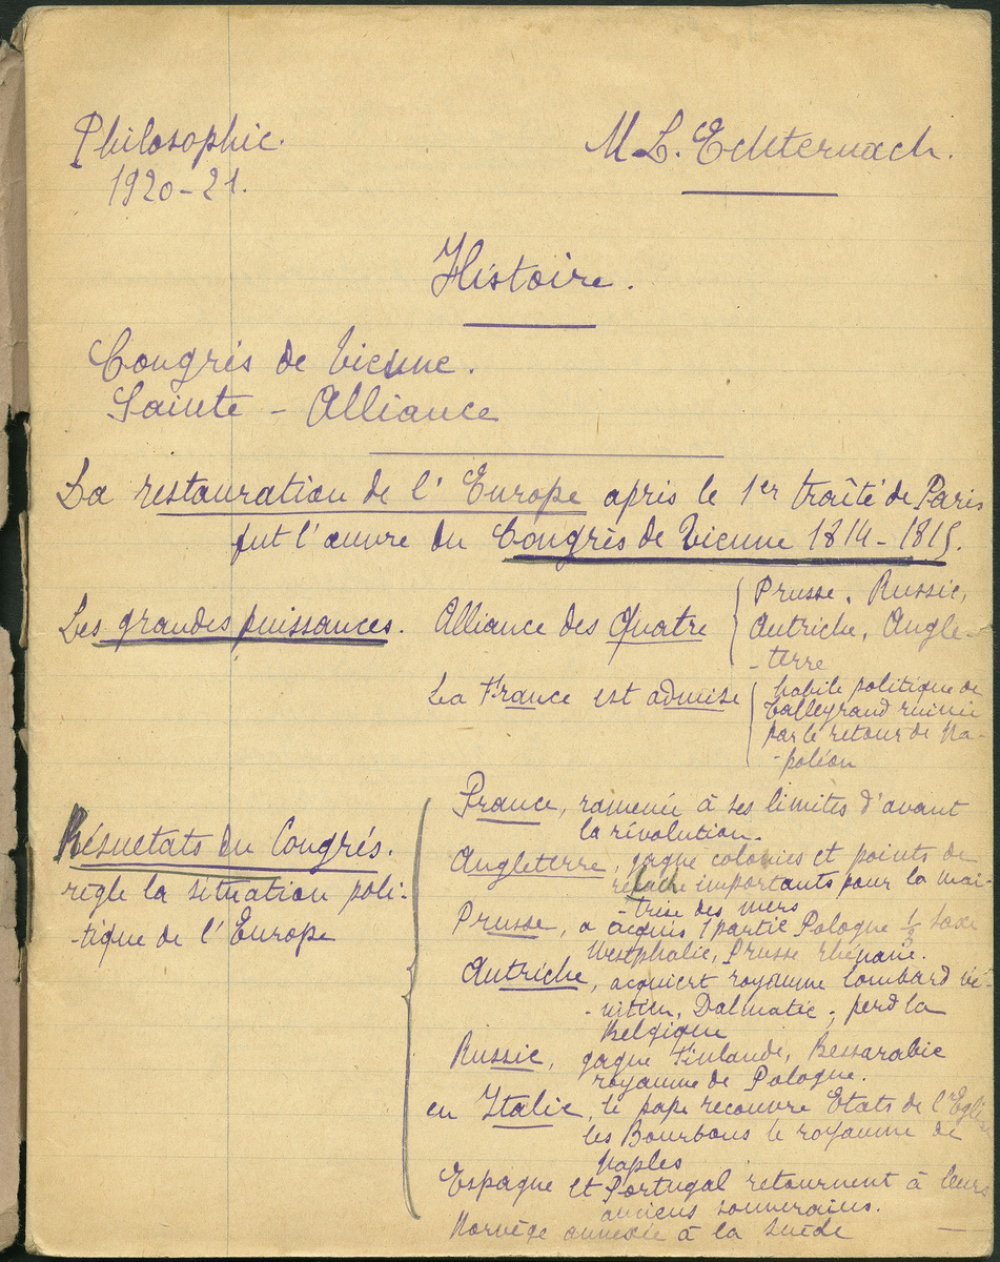 Philosophie.
M L. Echternach.
1920-21.
Histoire.
Congrès de Vienne.
Sainte - Alliance
La restauration de l'Europe après le 1er traité de Paris
fut l'œuvre du Congrès de Vienne 1814-1815.
Les grandes puissances. Alliance des Quatre
Prusse, Russie,
Autriche, Angle-
-terre
La France est admise
habile politique de
Talleyrand ruinée
par le retour de Na-
-poléon
Résultats du Congrès.
règle la situation poli-
-tique de l'Europe
France, ramenée à ses limites d'avant
la révolution.
Angleterre, gagne colonies et points de
relache importants pour la mai-
-trise des mers
Prusse, a acquis 1 partie Pologne 1/3 Saxe
Westphalie, Prusse rhénane.
Autriche, acquiert royaume lombard vé-
-nitien, Dalmatie; perd la
Belgique
Russie, gagne Finlande, Bessarabie
royaume de Pologne.
en Italie, le pape recouvre Etats de l'Eglise
les Bourbons le royaume de
Naples
Espagne et Portugal retournent à leurs
anciens souverains.
Norvège annexée à la Suède